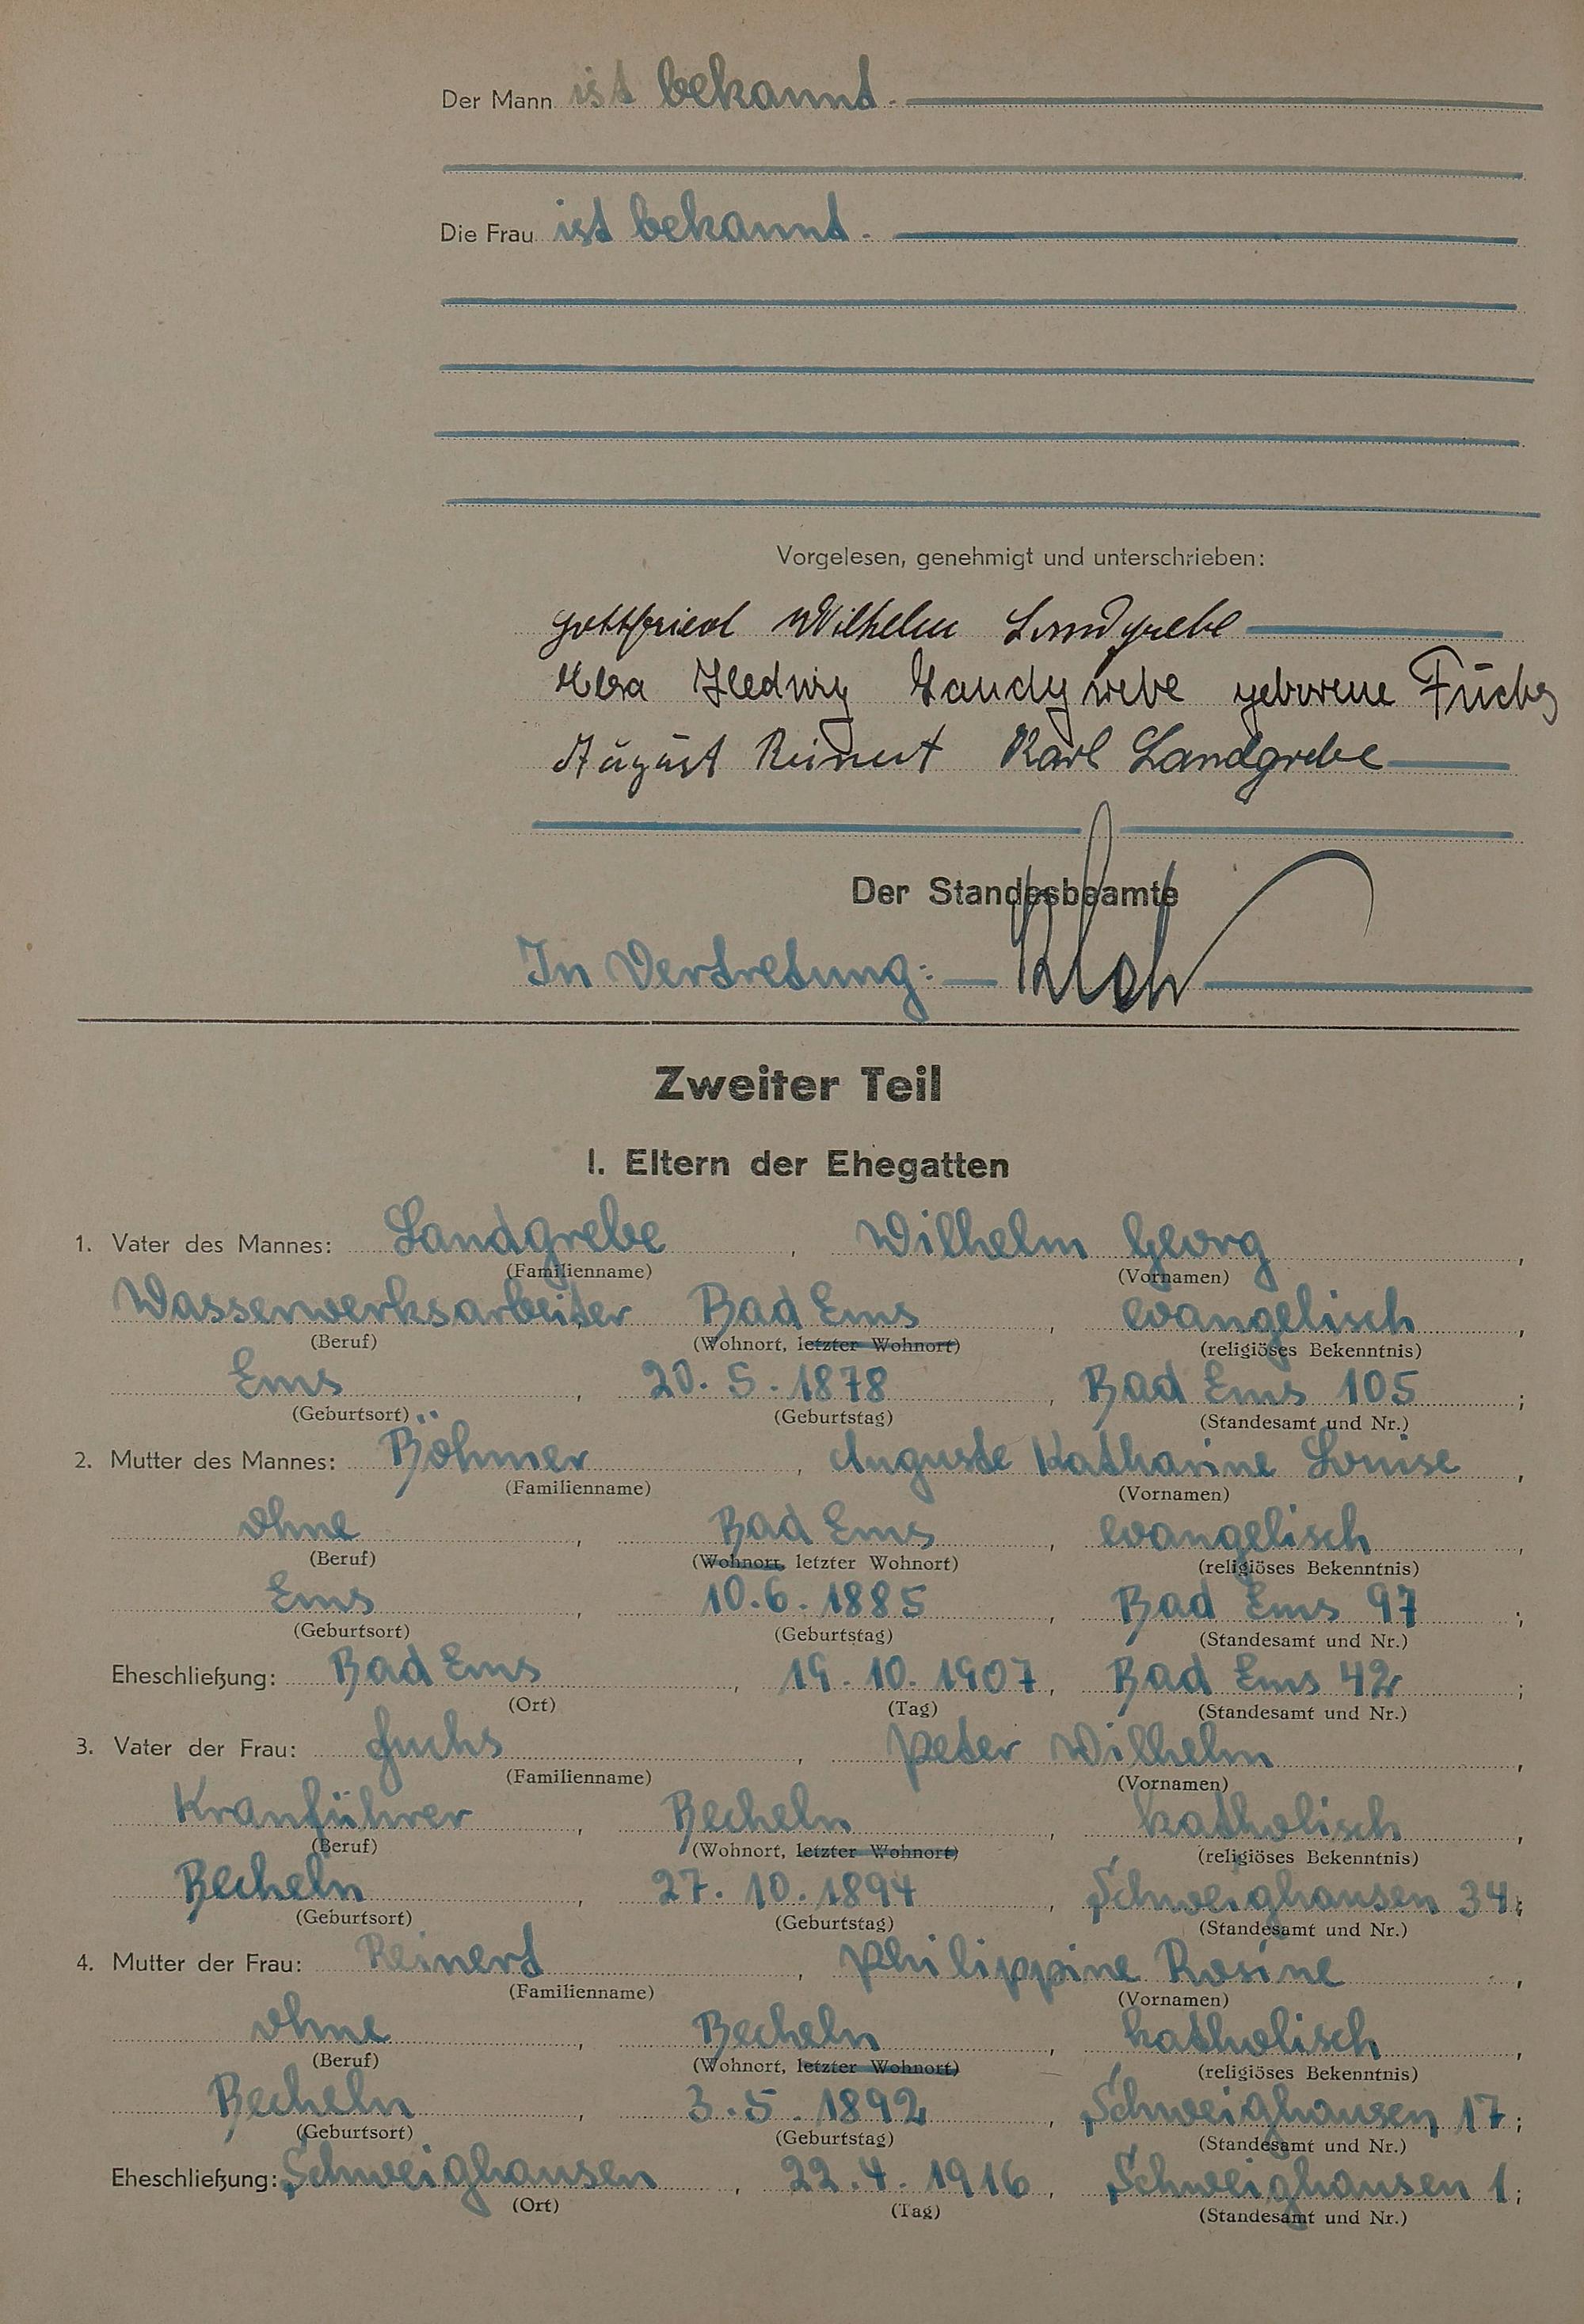 Der Mann ist bekannt.
Die Frau ist bekannt.
Vorgelesen, genehmigt und unterschrieben:
Gottfried Wilhelm Landgrebe
Elsa Hedwig Landgrebe geborene Fuchs
August Reinert Karl Landgrebe
Der Standesbeamte
In Vertretung:
Zweiter Teil
I. Eltern der Ehegatten
1. Vater des Mannes: Landgrebe, Wilhelm Georg,
(Familienname) (Vornamen)
Wasserwerksarbeiter, Bad Ems, evangelisch,
(Beruf) (Wohnort, letzter Wohnort) (religiöses Bekenntnis)
Ems, 20. 5. 1878, Bad Ems 105;
(Geburtsort) (Geburtstag) (Standesamt und Nr.)
2. Mutter des Mannes: Böhmer, Auguste Katharine Louise,
(Familienname) (Vornamen)
ohne, Bad Ems, evangelisch,
(Beruf) (Wohnort, letzter Wohnort) (religiöses Bekenntnis)
Ems, 10. 6. 1885, Bad Ems 97;
(Geburtsort) (Geburtstag) (Standesamt und Nr.)
Eheschließung: Bad Ems, 19. 10. 1907, Bad Ems 42;
(Ort) (Tag) (Standesamt und Nr.)
3. Vater der Frau: Fuchs, Peter Wilhelm,
(Familienname) (Vornamen)
Kranführer, Becheln, katholisch,
(Beruf) (Wohnort, letzter Wohnort) (religiöses Bekenntnis)
Becheln, 27. 10. 1894, Schweighausen 34;
(Geburtsort) (Geburtstag) (Standesamt und Nr.)
4. Mutter der Frau: Reinert, Philippine Rosine,
(Familienname) (Vornamen)
ohne, Becheln, katholisch,
(Beruf) (Wohnort, letzter Wohnort) (religiöses Bekenntnis)
Becheln, 3. 5. 1892, Schweighausen 17;
(Geburtsort) (Geburtstag) (Standesamt und Nr.)
Eheschließung: Schweighausen, 22. 4. 1916, Schweighausen 1;
(Ort) (Tag) (Standesamt und Nr.)